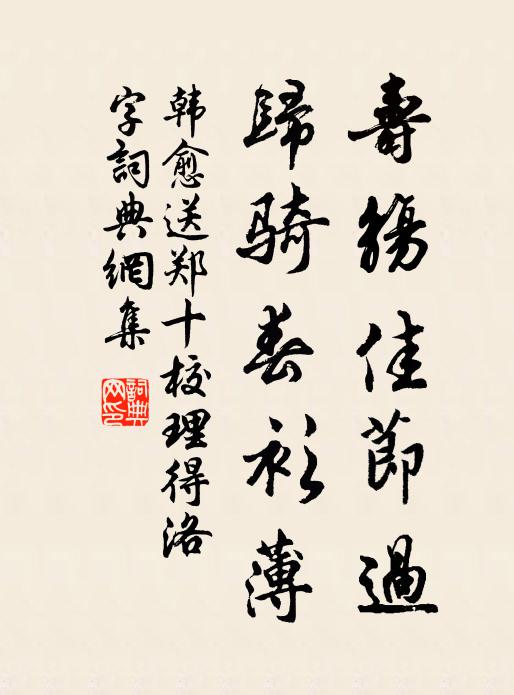 壽觴佳節過
歸騎春衫薄
韩愈送郑十校理得洛
字詞典網集
詞典网印